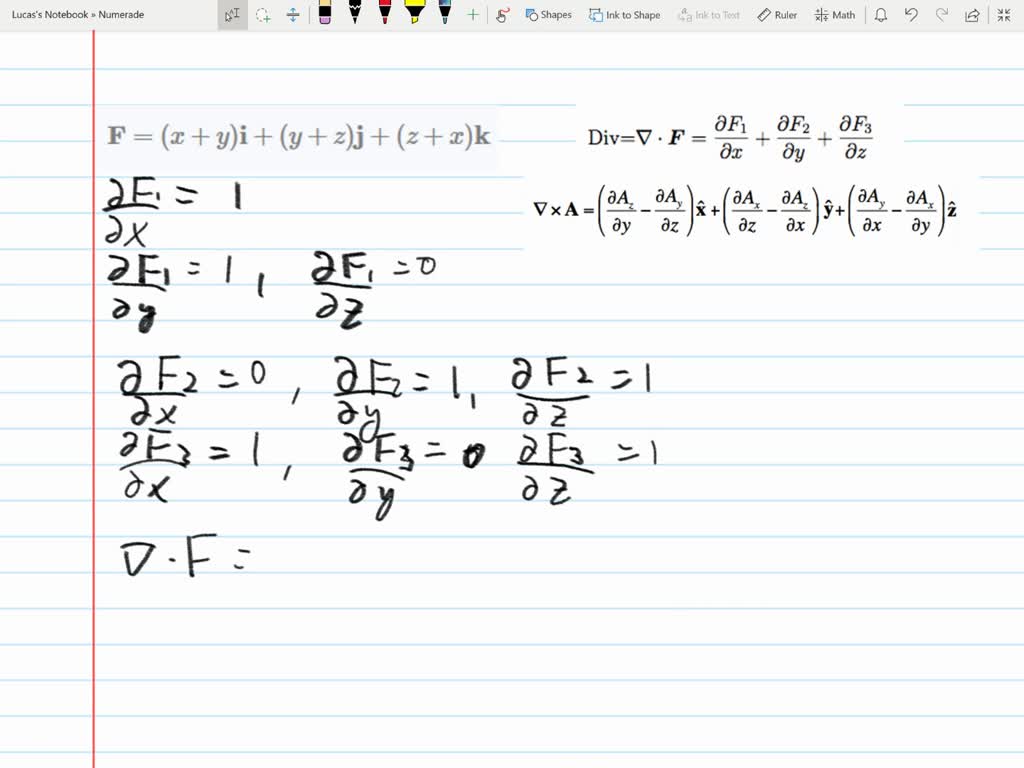 Lucas's Notebook » Numerade
Shapes Ink to Shape Ink to Text Ruler Math
F = (x + y)i + (y + z)j + (z + x)k
Div=∇ · F = ∂F₁/∂x + ∂F₂/∂y + ∂F₃/∂z
∇×A = (∂A_z/∂y − ∂A_y/∂z) x̂ + (∂A_x/∂z − ∂A_z/∂x) ŷ + (∂A_y/∂x − ∂A_x/∂y) ẑ
∂F₁/∂x = 1
∂F₁/∂y = 1 , ∂F₁/∂z = 0
∂F₂/∂x = 0 , ∂F₂/∂y = 1 , ∂F₂/∂z = 1
∂F₃/∂x = 1 , ∂F₃/∂y = 0 ∂F₃/∂z = 1
∇ · F =